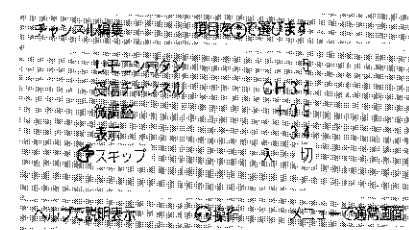 チャンネル編集 項目を で選びます
リモコンボタン 5
受信チャンネル CH34
微調整
表示 34
スキップ 入 切
ヘルプで説明表示 操作 メニューで通常画面